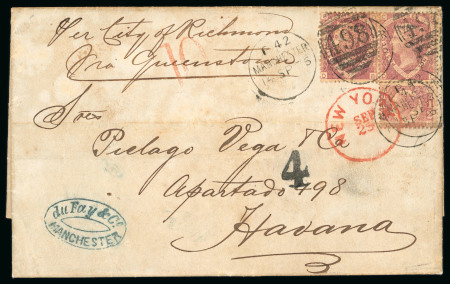 Per City of Richmond
Via Queenstown
10
498
F-42
MANCHESTER
SP
NEW YO
SEP
Sres
Pielago Vega & Ca
4
Apartado 498
Habana
du Fay & Co
MANCHESTER